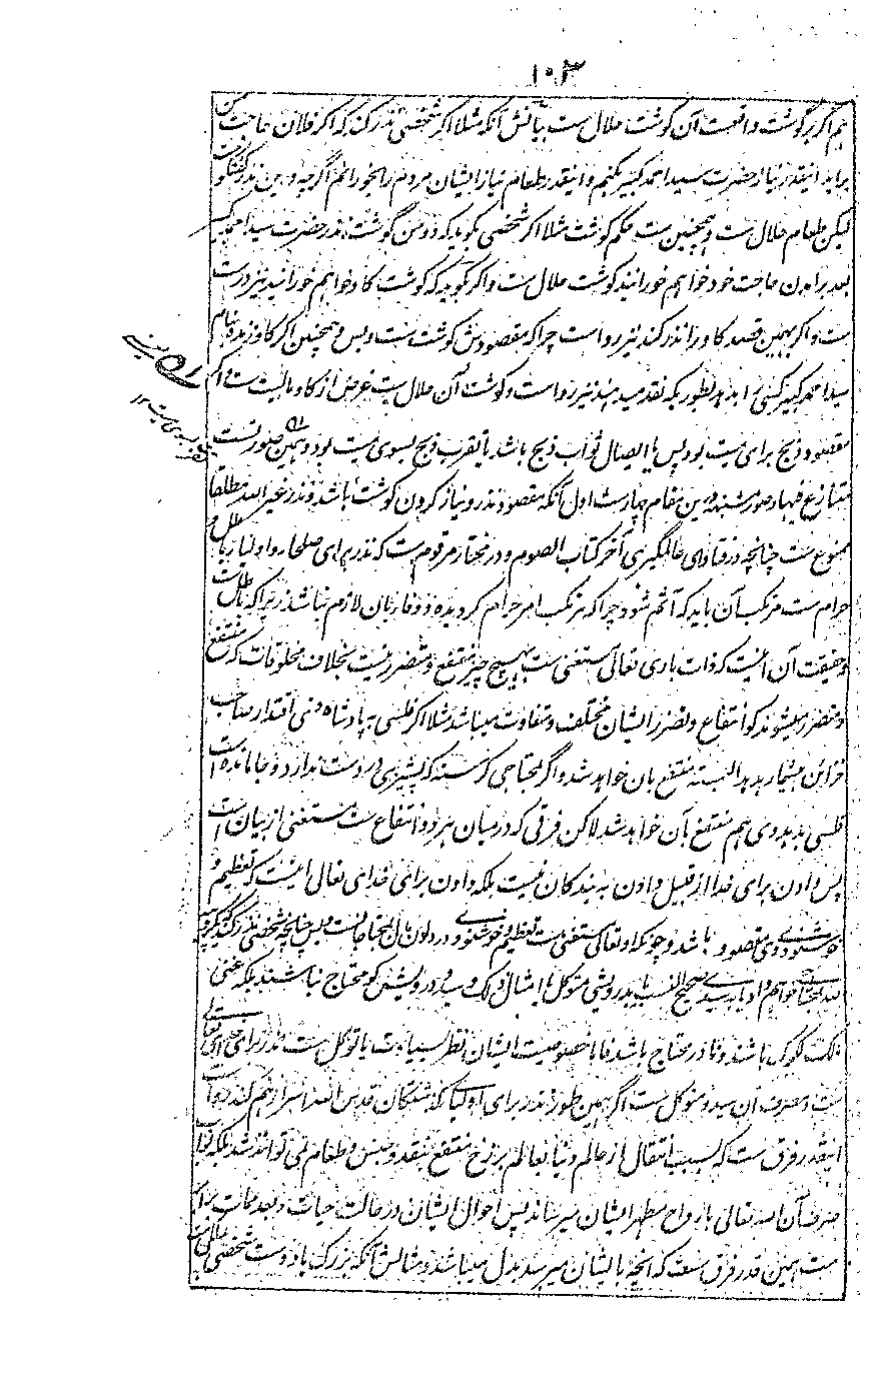 ۱۰۳
هم اگر برگوشت واقعست آن گوشت حلال ست بیانش آنکه مثلا اگر شخصی نذر کند که اگر فلان حاجت من
برآید اینقدر نیاز حضرت سید احمد کبیر بکنم و اینقدر طعام نیاز ایشان مردم را بخورانم اگرچه درین نذر گفتگوست
لیکن طعام حلال ست و همچنین ست حکم گوشت مثلا اگر شخصی بگوید که دو من گوشت نذر حضرت سید احمد کبیر
بعد برآمدن حاجت خود خواهم خورانید گوشت حلال ست و اگر بگوید که گوشت گاو خواهم خورانید نیز درست
ست و اگر بهمین قصد گاو را نذر کند نیز رواست چرا که مقصودش گوشت ست و بس و همچنین اگر گاو زنده بنام
سید احمد کبیر کسی را بدهد بطوریکه نقد میدهند نیز رواست و گوشت آن حلال ست غرض از گاو مالیت ست و اگر
مقصود ذبح برای میت بود پس یا ایصال ثواب ذبح باشد یا تقرب ذبح بسوی میت بود و همین صورتست
متنازع فیها و صور مشتبه درین مقام چهارست اول آنکه مقصود نذر و نیاز کردن گوشت باشد و نذر غیر الله مطلقا
ممنوع ست چنانچه در فتاوای عالمگیری آخر کتاب الصوم و در مختار مرقوم ست که نذر برای صلحا و اولیا باطل و
حرام ست مرتکب آن باید که آثم شود چرا که مرتکب امر حرام گردیده و وفا بآن لازم نباشد زیرا که باطل ست
و حقیقت آن اینست که ذات باری تعالی مستغنی ست بهیچ چیز منتفع و متضرر نیست بخلاف مخلوقات که منتفع
و متضرر میشوند گو انتفاع و تضرر ایشان مختلف و متفاوت میباشد مثلا اگر فلسی به پادشاه ذی اقتدار صاحب
خزاین بیشمار بدهد البته منتفع بآن خواهد شد و اگر بمحتاجی گرسنه که پشیزی در دست ندارد و جا مانده است
فلسی بدهد وی هم منتفع بآن خواهد شد لاکن فرقی که درمیان هر دو انتفاع ست مستغنی از بیان است
پس دادن برای خدا از قبیل دادن به بندگان نیست بلکه دادن برای خدای تعالی اینست که تعظیم و
خوشنودی وی مقصود باشد و چونکه او تعالی مستغنی ست تعظیم و خوشنودی در دادن بآن محتاجانست و بس چنانچه شخصی نذر کند که گوسپند
لله بمحتاج خواهم داد یا بسیدی صحیح النسب یا بدرویشی متوکل یا امثال ذلک و سید و درویش گو محتاج نباشند بلکه غنی
مالک گوکن باشند و نادر محتاج باشد فاما خصوصیت ایشان نظر بسیادت یا توکل ست و نذر برای خدای تعالی
ست و مصرف آن سید و متوکل ست اگر بهمین طور نذر برای اولیا گذشتگان قدس الله اسرارهم کند رواست
اینقدر فرق ست که بسبب انتقال از عالم دنیا بعالم برزخ منتفع بنقد و جنس و طعام نمی توانند شد بلکه ثواب
صرف آن الله تعالی بارواح مطهر ایشان میرساند پس احوال ایشان در حالت حیات و بعد ممات برابر
ست همین قدر فرق ست که آنچه بایشان میرسد بدل میباشد و مثالش آنکه بزرگ یا دوست شخصی